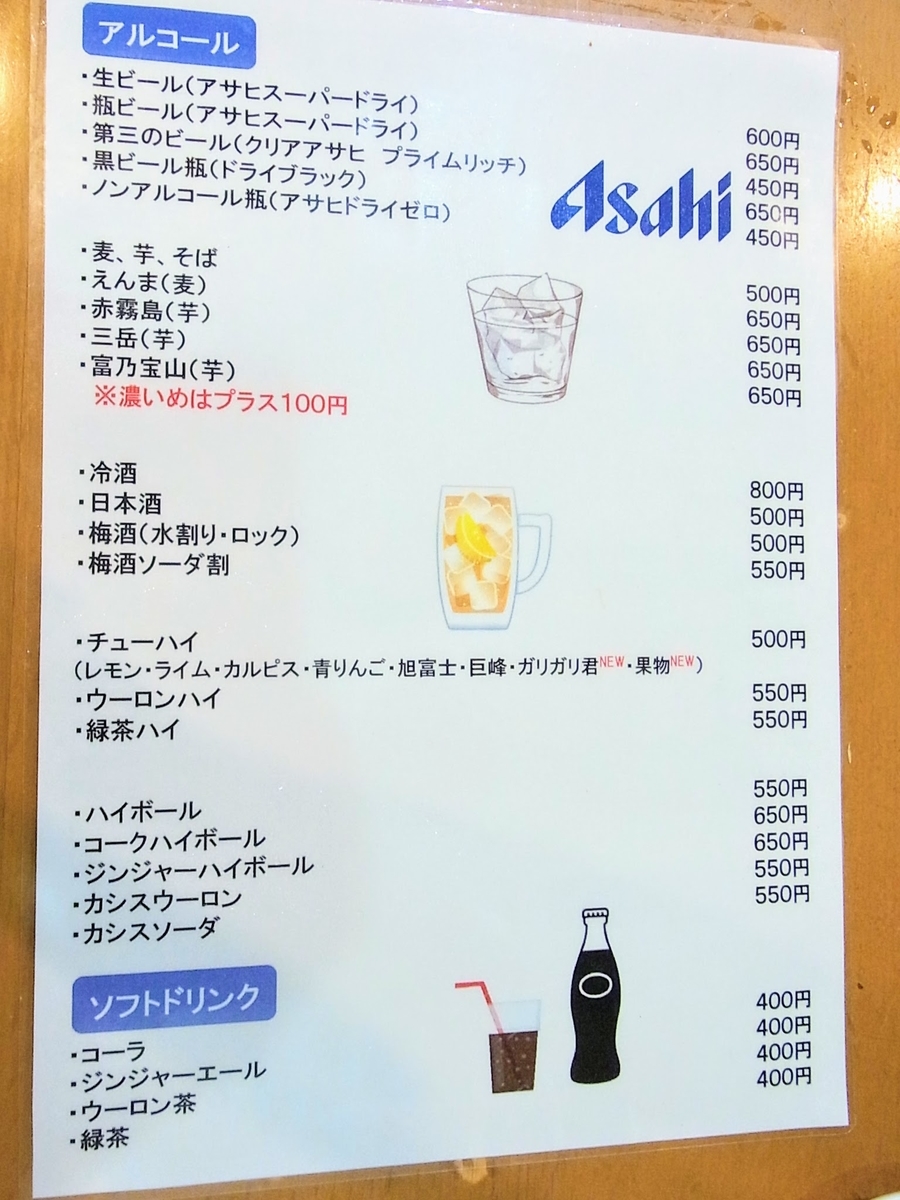 アルコール
・生ビール(アサヒスーパードライ) 600円
・瓶ビール(アサヒスーパードライ) 650円
・第三のビール(クリアアサヒ プライムリッチ) 450円
・黒ビール瓶(ドライブラック) 650円
・ノンアルコール瓶(アサヒドライゼロ) 450円
Asahi
・麦、芋、そば 500円
・えんま(麦) 650円
・赤霧島(芋) 650円
・三岳(芋) 650円
・富乃宝山(芋) 650円
※濃いめはプラス100円
・冷酒 800円
・日本酒 500円
・梅酒(水割り・ロック) 500円
・梅酒ソーダ割 550円
・チューハイ 500円
(レモン・ライム・カルピス・青りんご・旭富士・巨峰・ガリガリ君NEW・果物NEW)
・ウーロンハイ 550円
・緑茶ハイ 550円
・ハイボール 550円
・コークハイボール 650円
・ジンジャーハイボール 650円
・カシスウーロン 550円
・カシスソーダ 550円
ソフトドリンク
・コーラ 400円
・ジンジャーエール 400円
・ウーロン茶 400円
・緑茶 400円